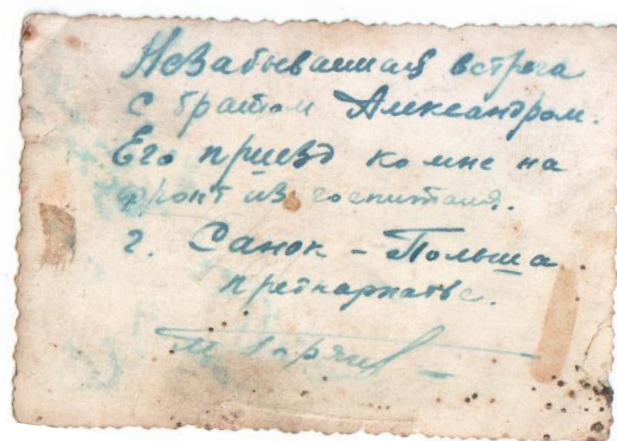 Незабываемая встреча
с братом Александром.
Его приезд ко мне на
фронт из госпиталя.
г. Санок - Польша
прекарпатье.